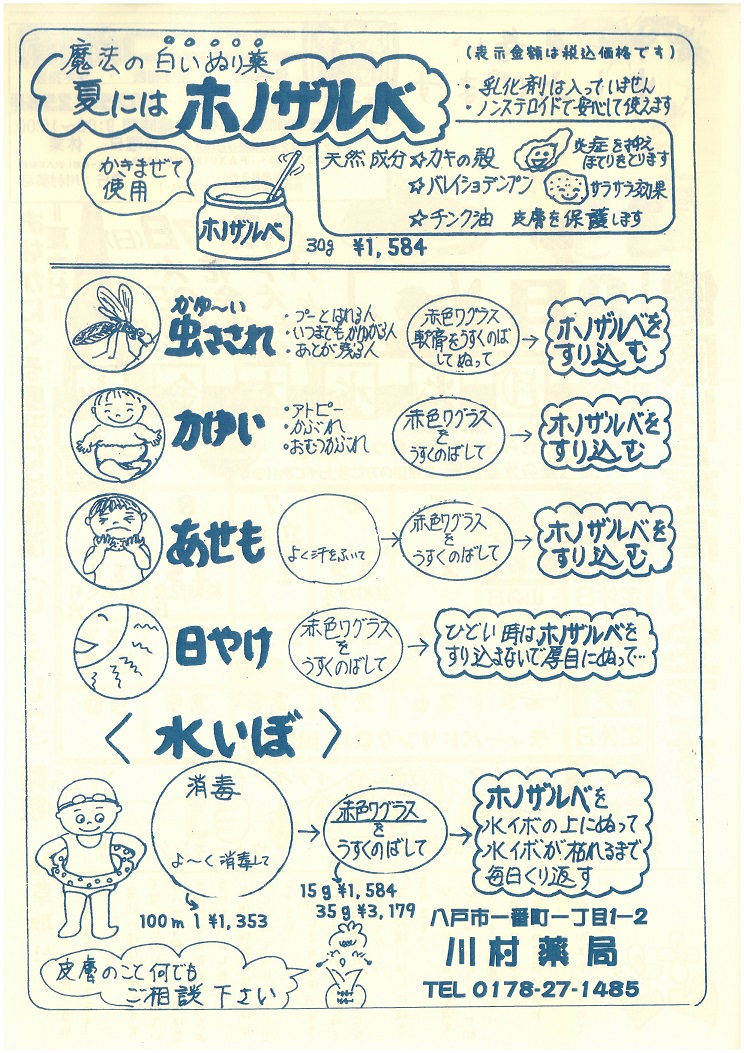 (表示金額は税込価格です)
魔法の白いぬり薬
夏にはホノザルベ
・乳化剤は入っていません
・ノンステロイドで安心して使えます
かきまぜて
使用
ホノザルベ
30g ¥1,584
天然成分☆カキの殻 炎症を抑え
ほてりをとります
☆バレイショデンプン サラサラ効果
☆チンク油 皮膚を保護します
かゆ〜い
虫さされ
・プーとはれる人
・いつまでもかゆがる人
・あとが残る人
赤色ワグラス
軟膏をうすくのば
してぬって
→
ホノザルベを
すり込む
かゆい
・アトピー
・かぶれ
・おむつかぶれ
赤色ワグラス
を
うすくのばして
→
ホノザルベを
すり込む
あせも
よく汗をふいて
→
赤色ワグラス
を
うすくのばして
→
ホノザルベを
すり込む
日やけ
赤色ワグラス
を
うすくのばして
→
ひどい時はホノザルベを
すり込まないで厚目にぬって…
〈水いぼ〉
消毒
よ〜く消毒して
100ml ¥1,353
→
赤色ワグラス
を
うすくのばして
15g ¥1,584
35g ¥3,179
→
ホノザルベを
水イボの上にぬって
水イボが枯れるまで
毎日くり返す
皮膚のこと何でも
ご相談下さい
八戸市一番町一丁目1-2
川村薬局
TEL 0178-27-1485